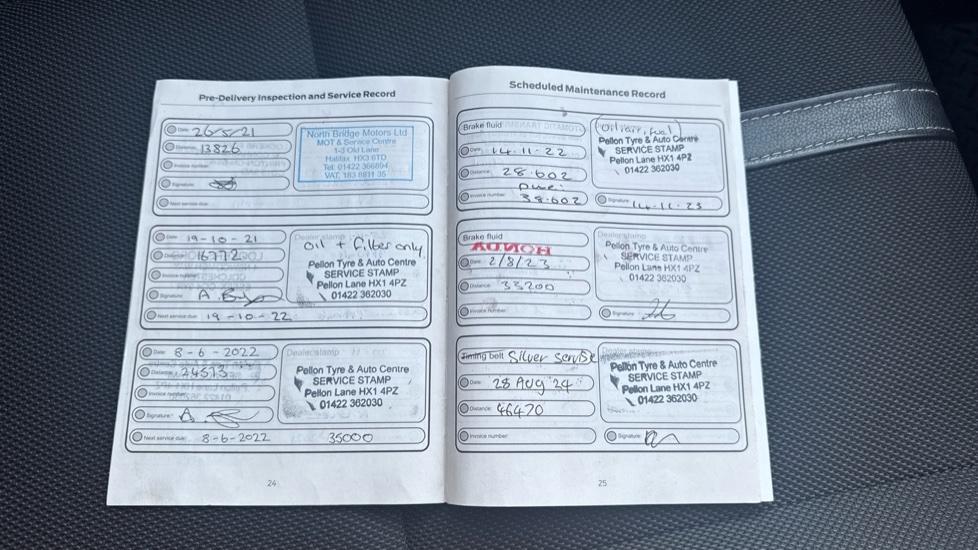 Pre-Delivery Inspection and Service Record
Date: 26/5/21
Distance: 13826
Invoice number:
Signature:
Next service due:
North Bridge Motors Ltd
MOT & Service Centre
1-3 Old Lane
Halifax HX3 6TD
Tel: 01422 366894
VAT. 183 8811 35
Date: 19-10-21
Distance: 16772
Signature: A.
Next service due: 19-10-22
Dealer stamp
Oil + filter only
Pellon Tyre & Auto Centre
SERVICE STAMP
Pellon Lane HX1 4PZ
01422 362030
Date: 8-6-2022
Distance: 24573
Invoice number:
Signature: A.
Next service due: 8-6-2022 35000
Dealer stamp
Pellon Tyre & Auto Centre
SERVICE STAMP
Pellon Lane HX1 4PZ
01422 362030
24
Scheduled Maintenance Record
Brake fluid
Date: 14.11.22
Distance: 28.602
Due:
Invoice number: 38.602
Oil, air, fuel
Pellon Tyre & Auto Centre
SERVICE STAMP
Pellon Lane HX1 4PZ
01422 362030
Signature: 14.11.23
Brake fluid
Date: 2/8/23
Distance: 33200
Invoice number:
Dealer stamp
Pellon Tyre & Auto Centre
SERVICE STAMP
Pellon Lane HX1 4PZ
01422 362030
Signature:
Timing belt Silver Servise
Date: 28 Aug 24
Distance: 46470
Invoice number:
Pellon Tyre & Auto Centre
SERVICE STAMP
Pellon Lane HX1 4PZ
01422 362030
Signature:
25